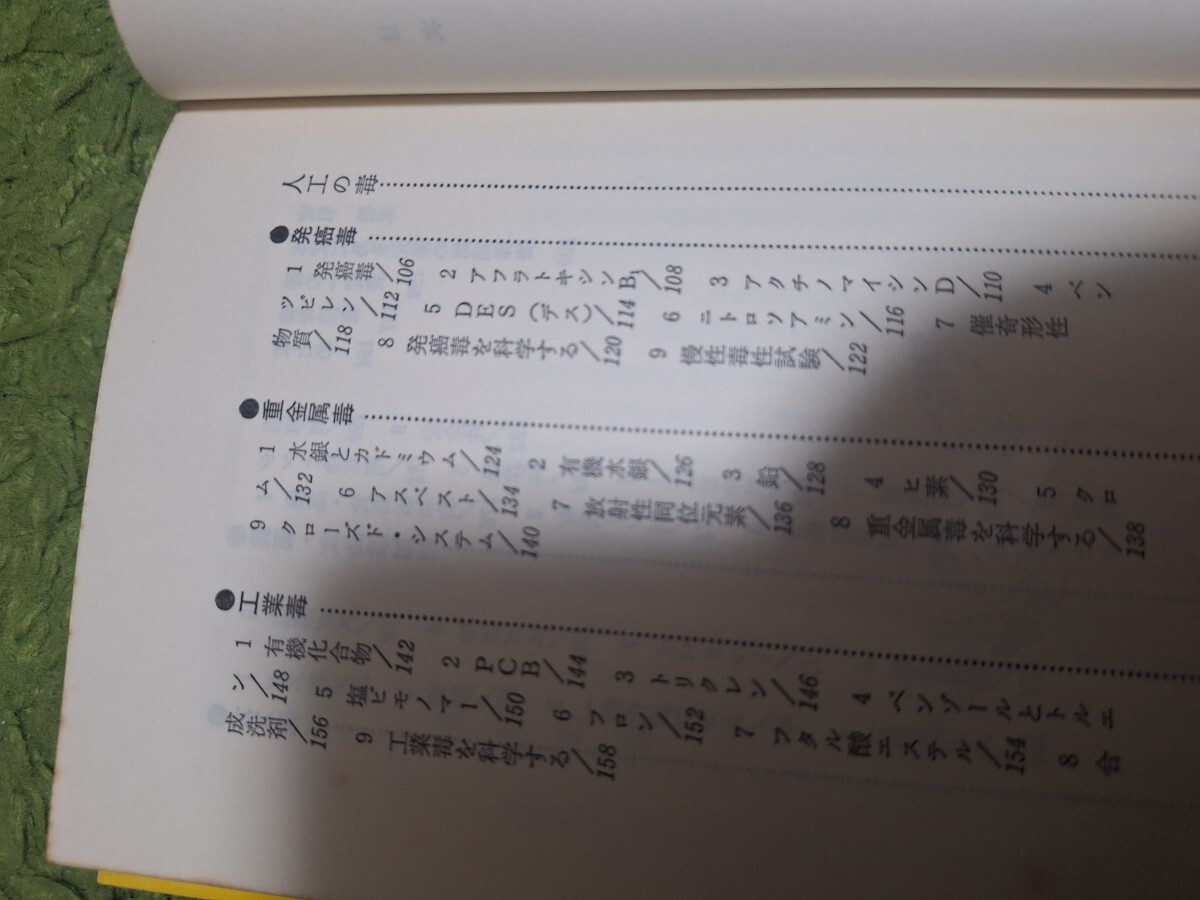 人工の毒
●発癌毒
1 発癌毒/106 2 アフラトキシンB₁/108 3 アクチノマイシンD/110 4 ベン
ツピレン/112 5 DES(デス)/114 6 ニトロソアミン/116 7 催奇形性
物質/118 8 発癌毒を科学する/120 9 慢性毒性試験/122
●重金属毒
1 水銀とカドミウム/124 2 有機水銀/126 3 鉛/128 4 ヒ素/130 5 クロ
ム/132 6 アスベスト/134 7 放射性同位元素/136 8 重金属毒を科学する/138
9 クローズド・システム/140
●工業毒
1 有機化合物/142 2 PCB/144 3 トリクレン/146 4 ベンゾールとトルエ
ン/148 5 塩ビモノマー/150 6 フロン/152 7 フタル酸エステル/154 8 合
成洗剤/156 9 工業毒を科学する/158